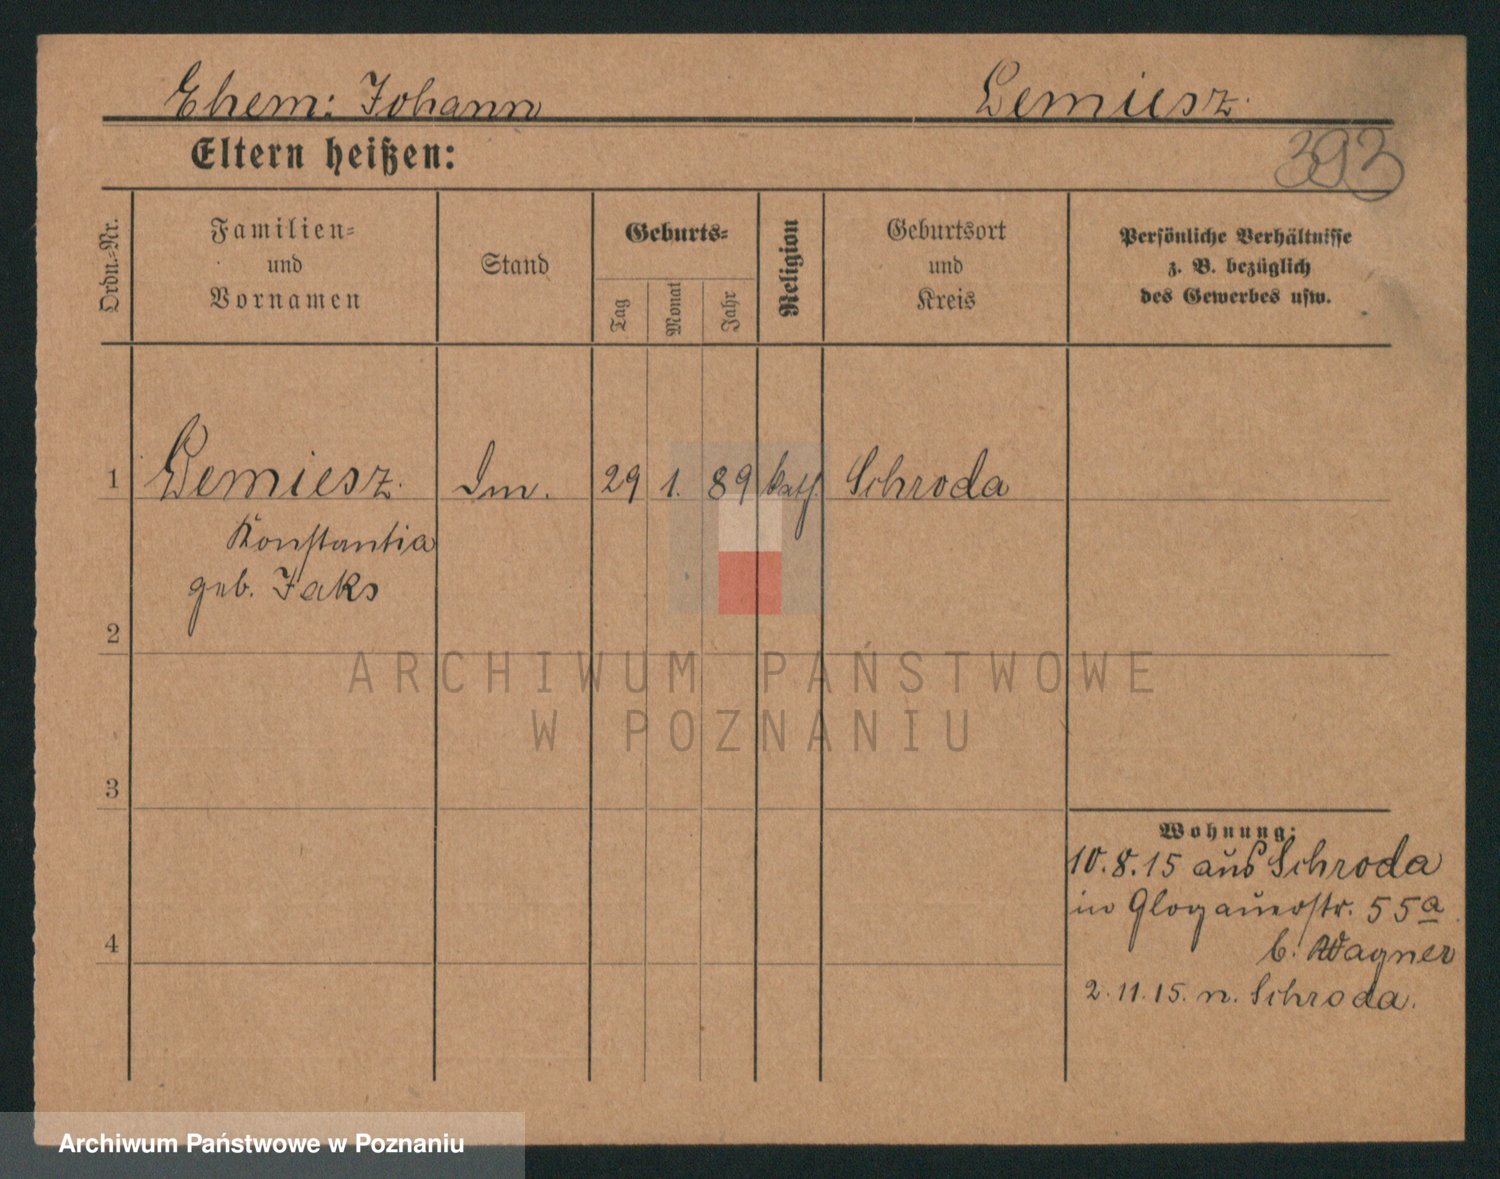 Ehem: Johann Lemiesz.
Eltern heißen:
393
Ordn.-Nr.
Familien- und Vornamen
Stand
Geburts-
Tag Monat Jahr
Religion
Geburtsort und Kreis
Persönliche Verhältnisse
z. B. bezüglich
des Gewerbes usw.
1 Lemiesz. 29 1. 89 kath. Schroda
Konstantia
geb. Jaks
2
3
4
Wohnung:
10.8.15 aus Schroda
in Glogauerstr. 55a.
b. Wagner
2.11.15. n. Schroda.
ARCHIWUM PAŃSTWOWE
W POZNANIU
Archiwum Państwowe w Poznaniu